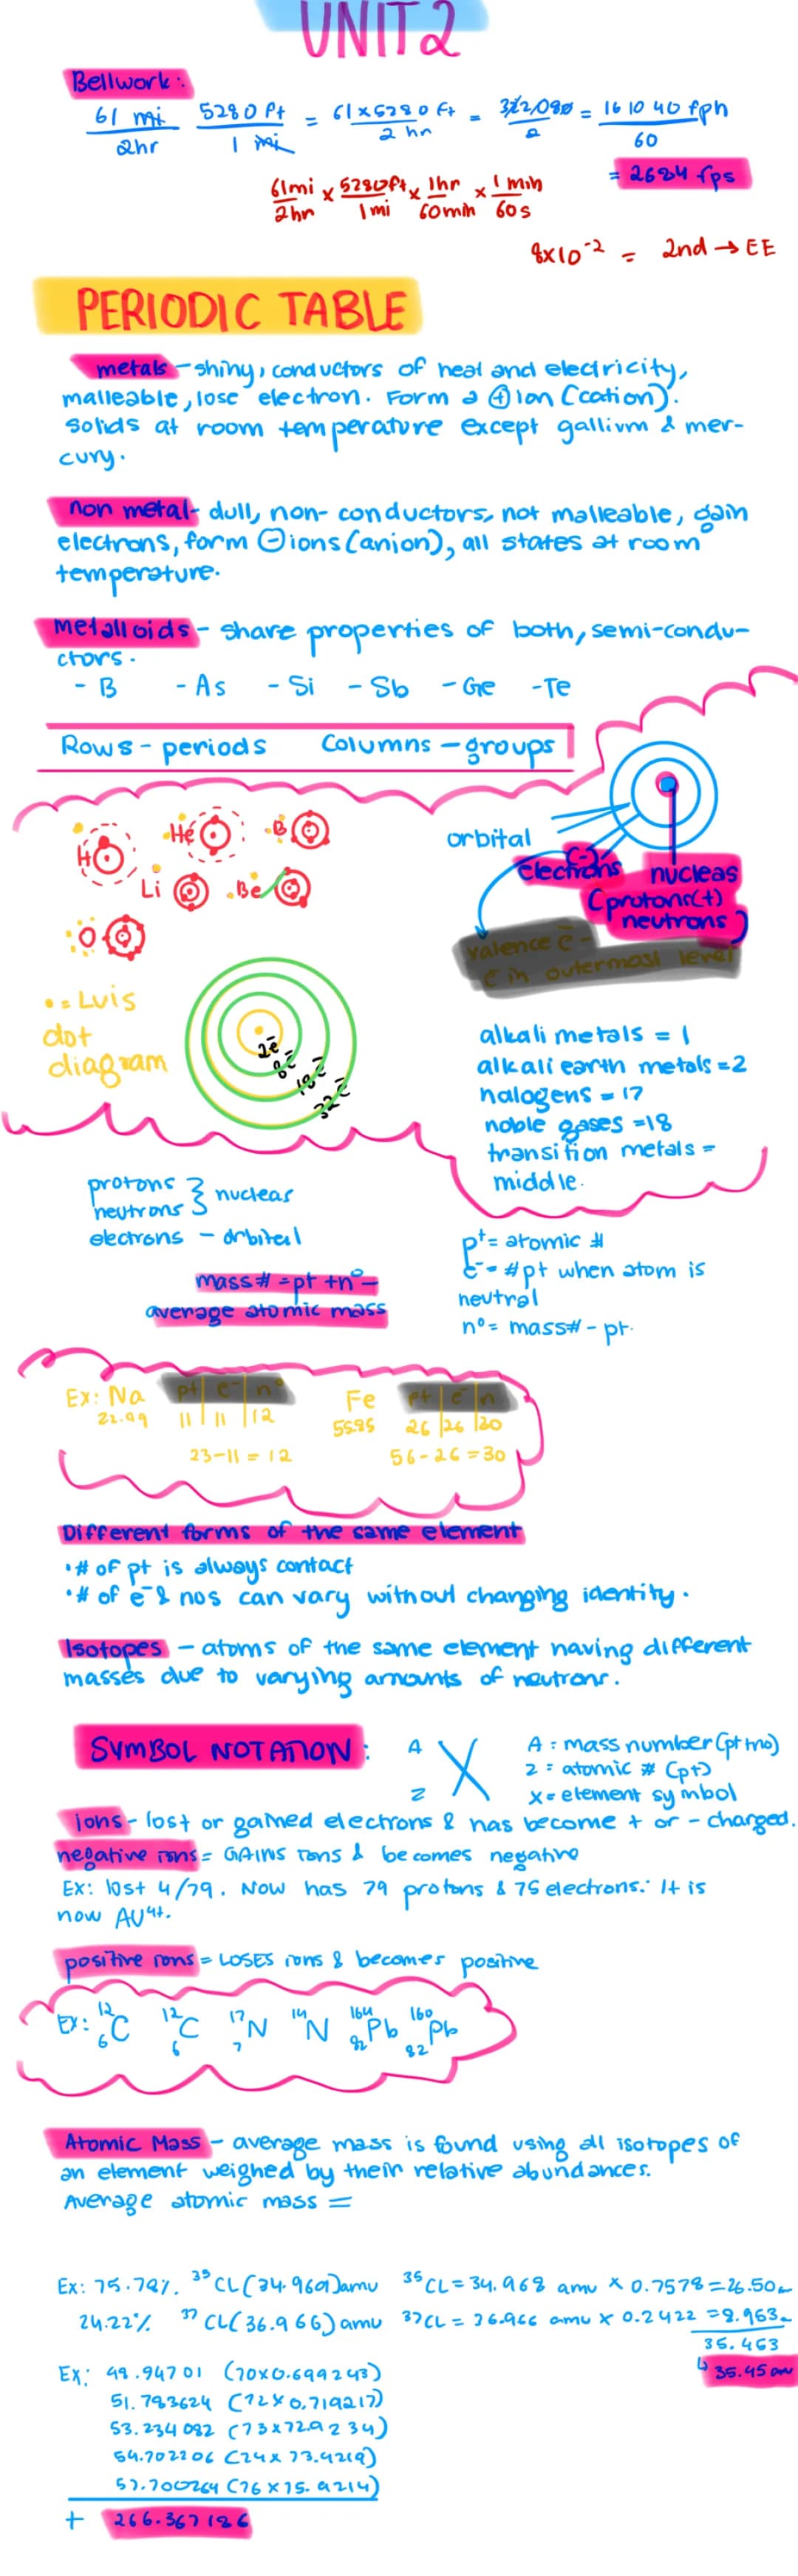 UNIT 2
Bellwork:
61 mi 5280 ft = 61 x 5280 ft = 322,080 = 161040 fph
2hr 1 mi 2 hr 2 60
= 2684 fps
61mi x 5280ft x 1hr x 1 min
2hr 1mi 60min 60s
8x10⁻² = 2nd → EE
PERIODIC TABLE
metals - shiny, conductors of heat and electricity,
malleable, lose electron. Form a ⊕ ion (cation).
Solids at room temperature except gallium & mer-
cury.
non metal - dull, non-conductors, not malleable, gain
electrons, form ⊖ ions (anion), all states at room
temperature.
metalloids - share properties of both, semi-condu-
ctors.
- B - As - Si - Sb - Ge - Te
Rows - periods Columns - groups
H He B
Li Be
O
• = Luis
dot
diagram
2e⁻
8e⁻
18e⁻
32e⁻
orbital
electrons (-)
nucleas
(protons(+)
neutrons)
valence e⁻ -
e⁻ in outermost level
alkali metals = 1
alkali earth metals = 2
halogens = 17
noble gases = 18
transition metals =
middle.
protons } nuclear
neutrons
electrons - orbital
mass# = p+ + n° -
average atomic mass
p⁺ = atomic #
e⁻ = #p+ when atom is
neutral
n° = mass# - p+
Ex: Na p+ | e⁻ | n°
22.99 11 | 11 | 12
23-11 = 12
Fe p+ | e⁻ | n
55.85 26 | 26 | 30
56-26 = 30
Different forms of the same element
• # of p+ is always contact
• # of e⁻ & nos can vary without changing identity.
Isotopes - atoms of the same element having different
masses due to varying amounts of neutrons.
SYMBOL NOTATION:
A
Z X
A = mass number (p+ + no)
Z = atomic # (p+)
x = element symbol
ions - lost or gained electrons & has become + or - charged.
negative ions = GAINS ions & becomes negative
Ex: lost 4/79. Now has 79 protons & 75 electrons. It is
now AU⁴⁺.
positive ions = LOSES ions & becomes positive
Ex: ¹²₆C ¹²₆C ¹⁷₇N ¹⁴N ¹⁶⁴₈₂Pb ¹⁶⁰₈₂Pb
Atomic Mass - average mass is found using all isotopes of
an element weighed by their relative abundances.
Average atomic mass =
Ex: 75.78% ³⁵CL (34.969) amu ³⁵CL = 34.968 amu x 0.7578 = 26.50
24.22% ³⁷CL (36.966) amu ³⁷CL = 36.966 amu x 0.2422 = 8.953
35.453
↳ 35.45 am
Ex: 48.94701 (70x0.699243)
51.783624 (72x0.719217)
53.234082 (73x72.9234)
54.702206 (74x73.9219)
57.700264 (76x75.9214)
+ 266.367186